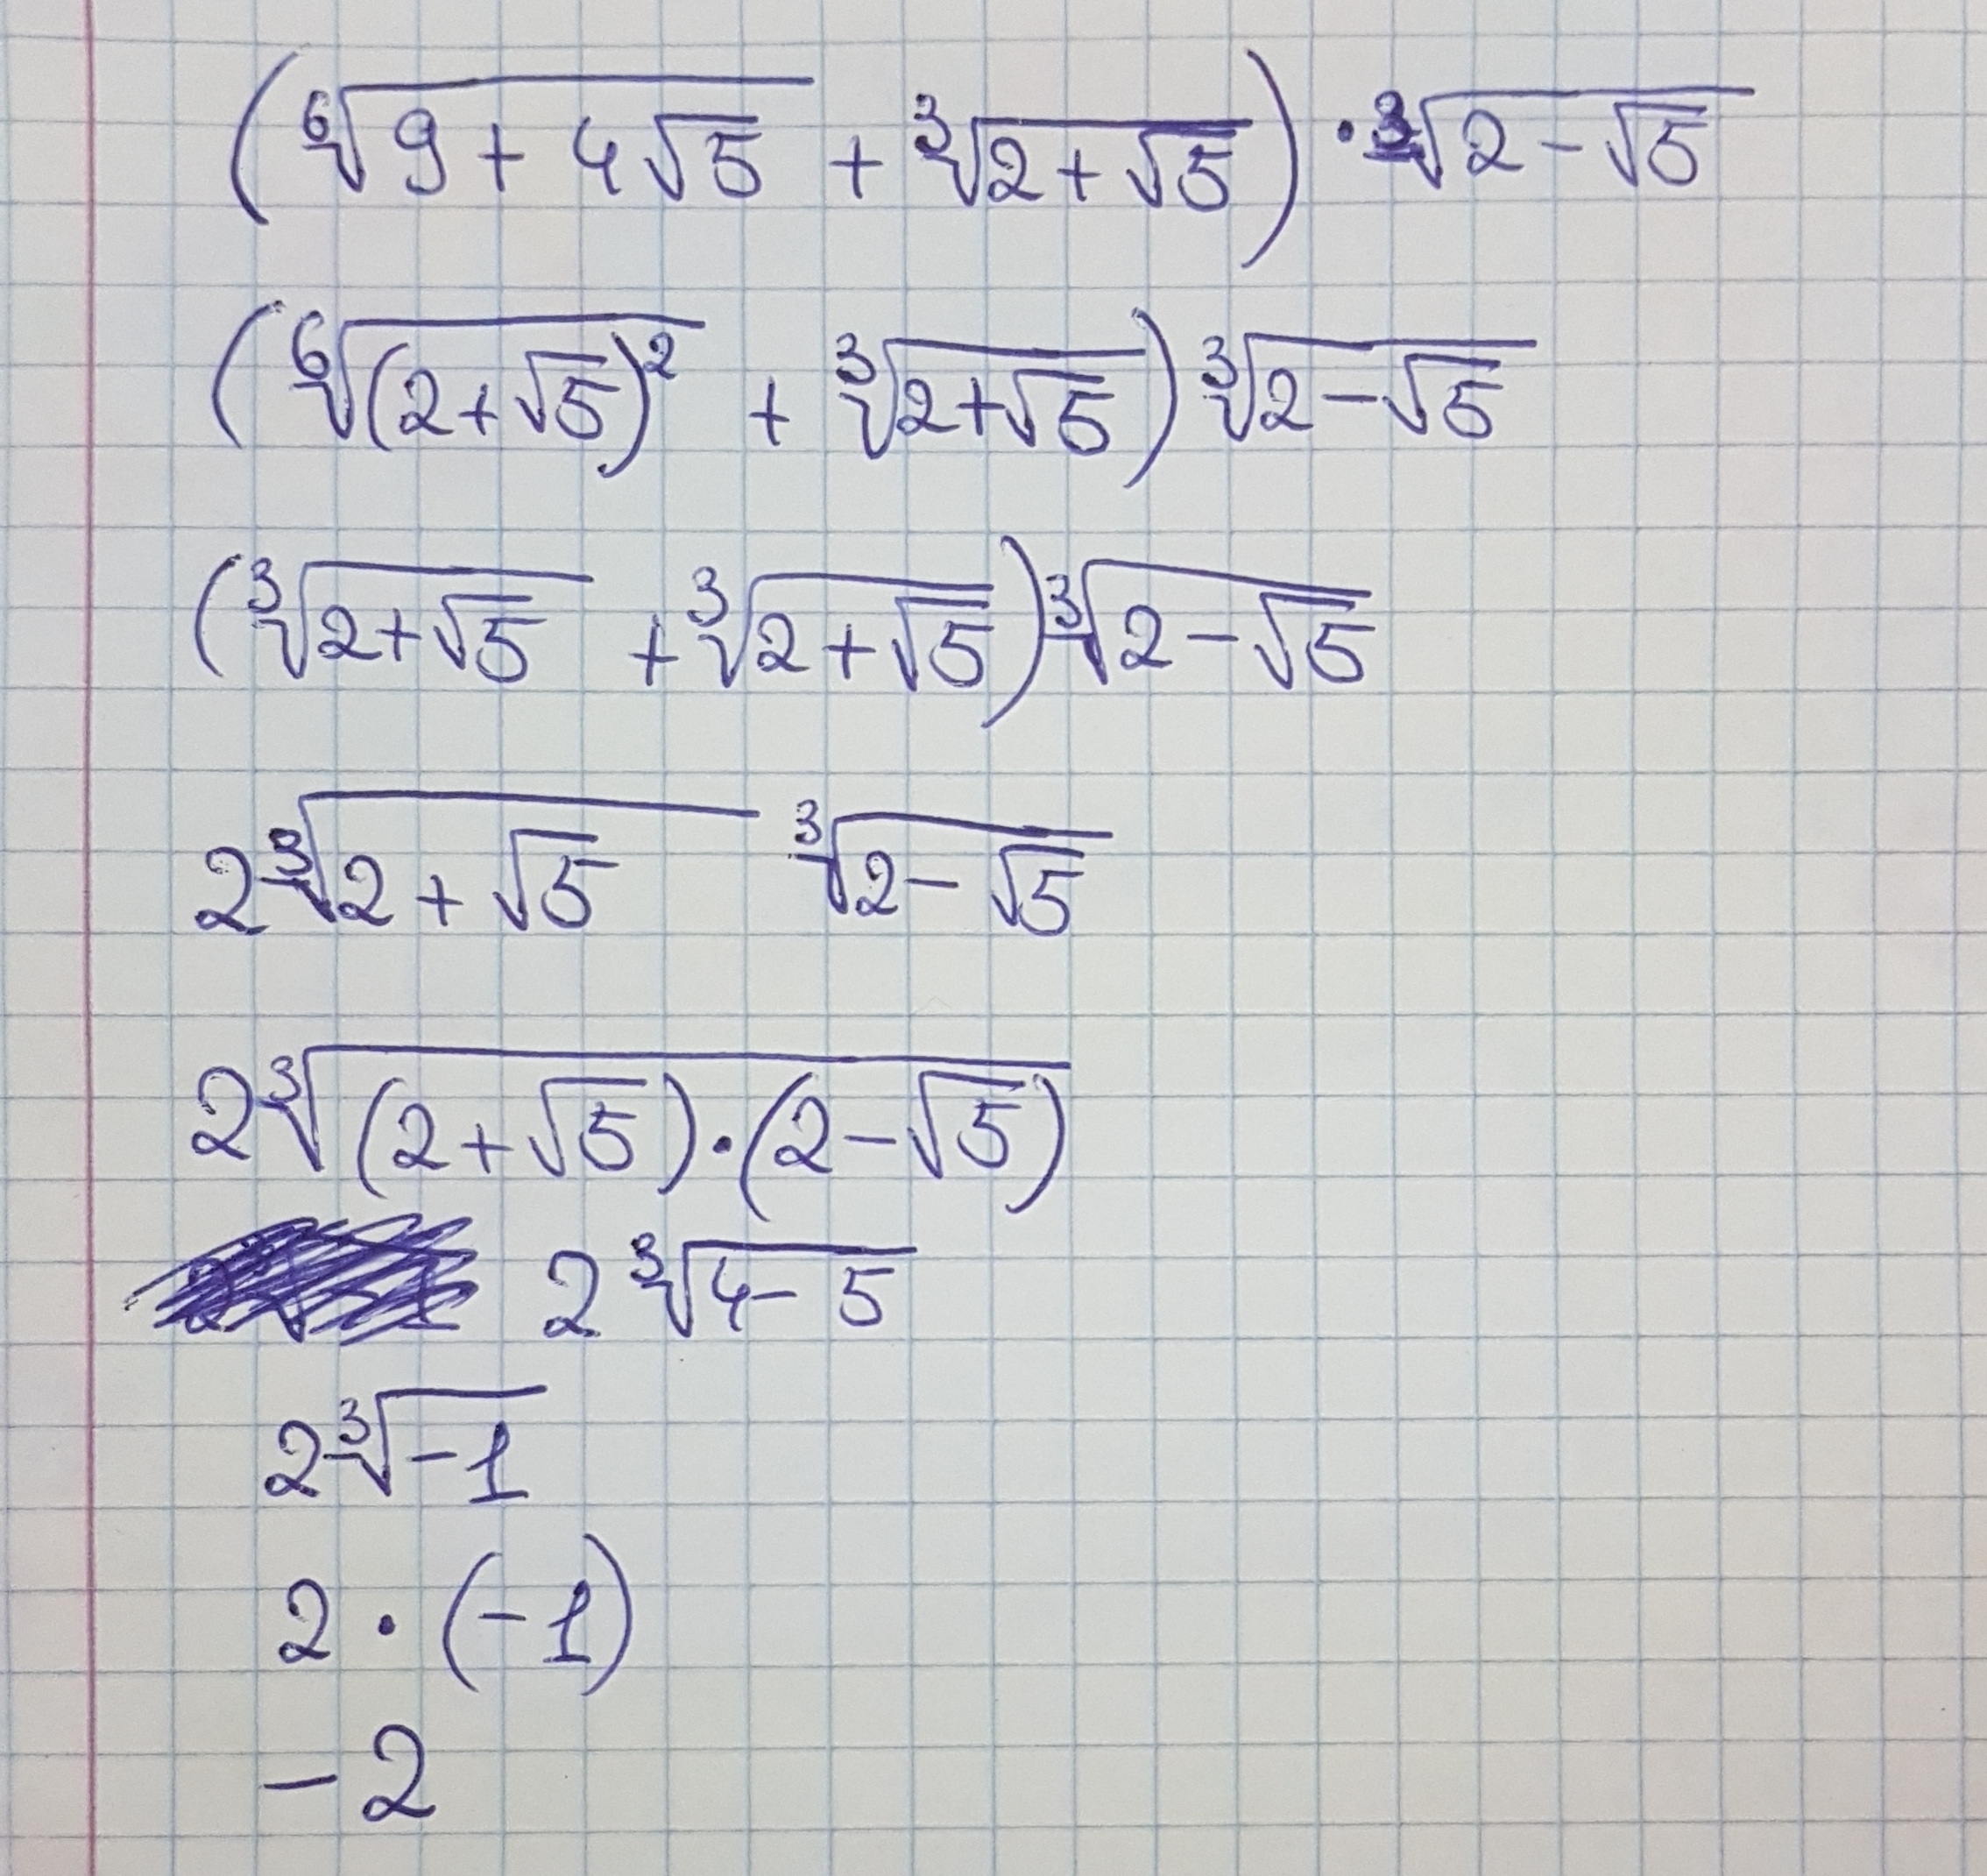 (⁶√(9 + 4√5) + ³√(2 + √5)) · ³√(2 - √5)
(⁶√((2 + √5)²) + ³√(2 + √5)) ³√(2 - √5)
(³√(2 + √5) + ³√(2 + √5)) ³√(2 - √5)
2 ³√(2 + √5) ³√(2 - √5)
2 ³√((2 + √5) · (2 - √5))
2 ³√(4 - 5)
2 ³√(-1)
2 · (-1)
- 2